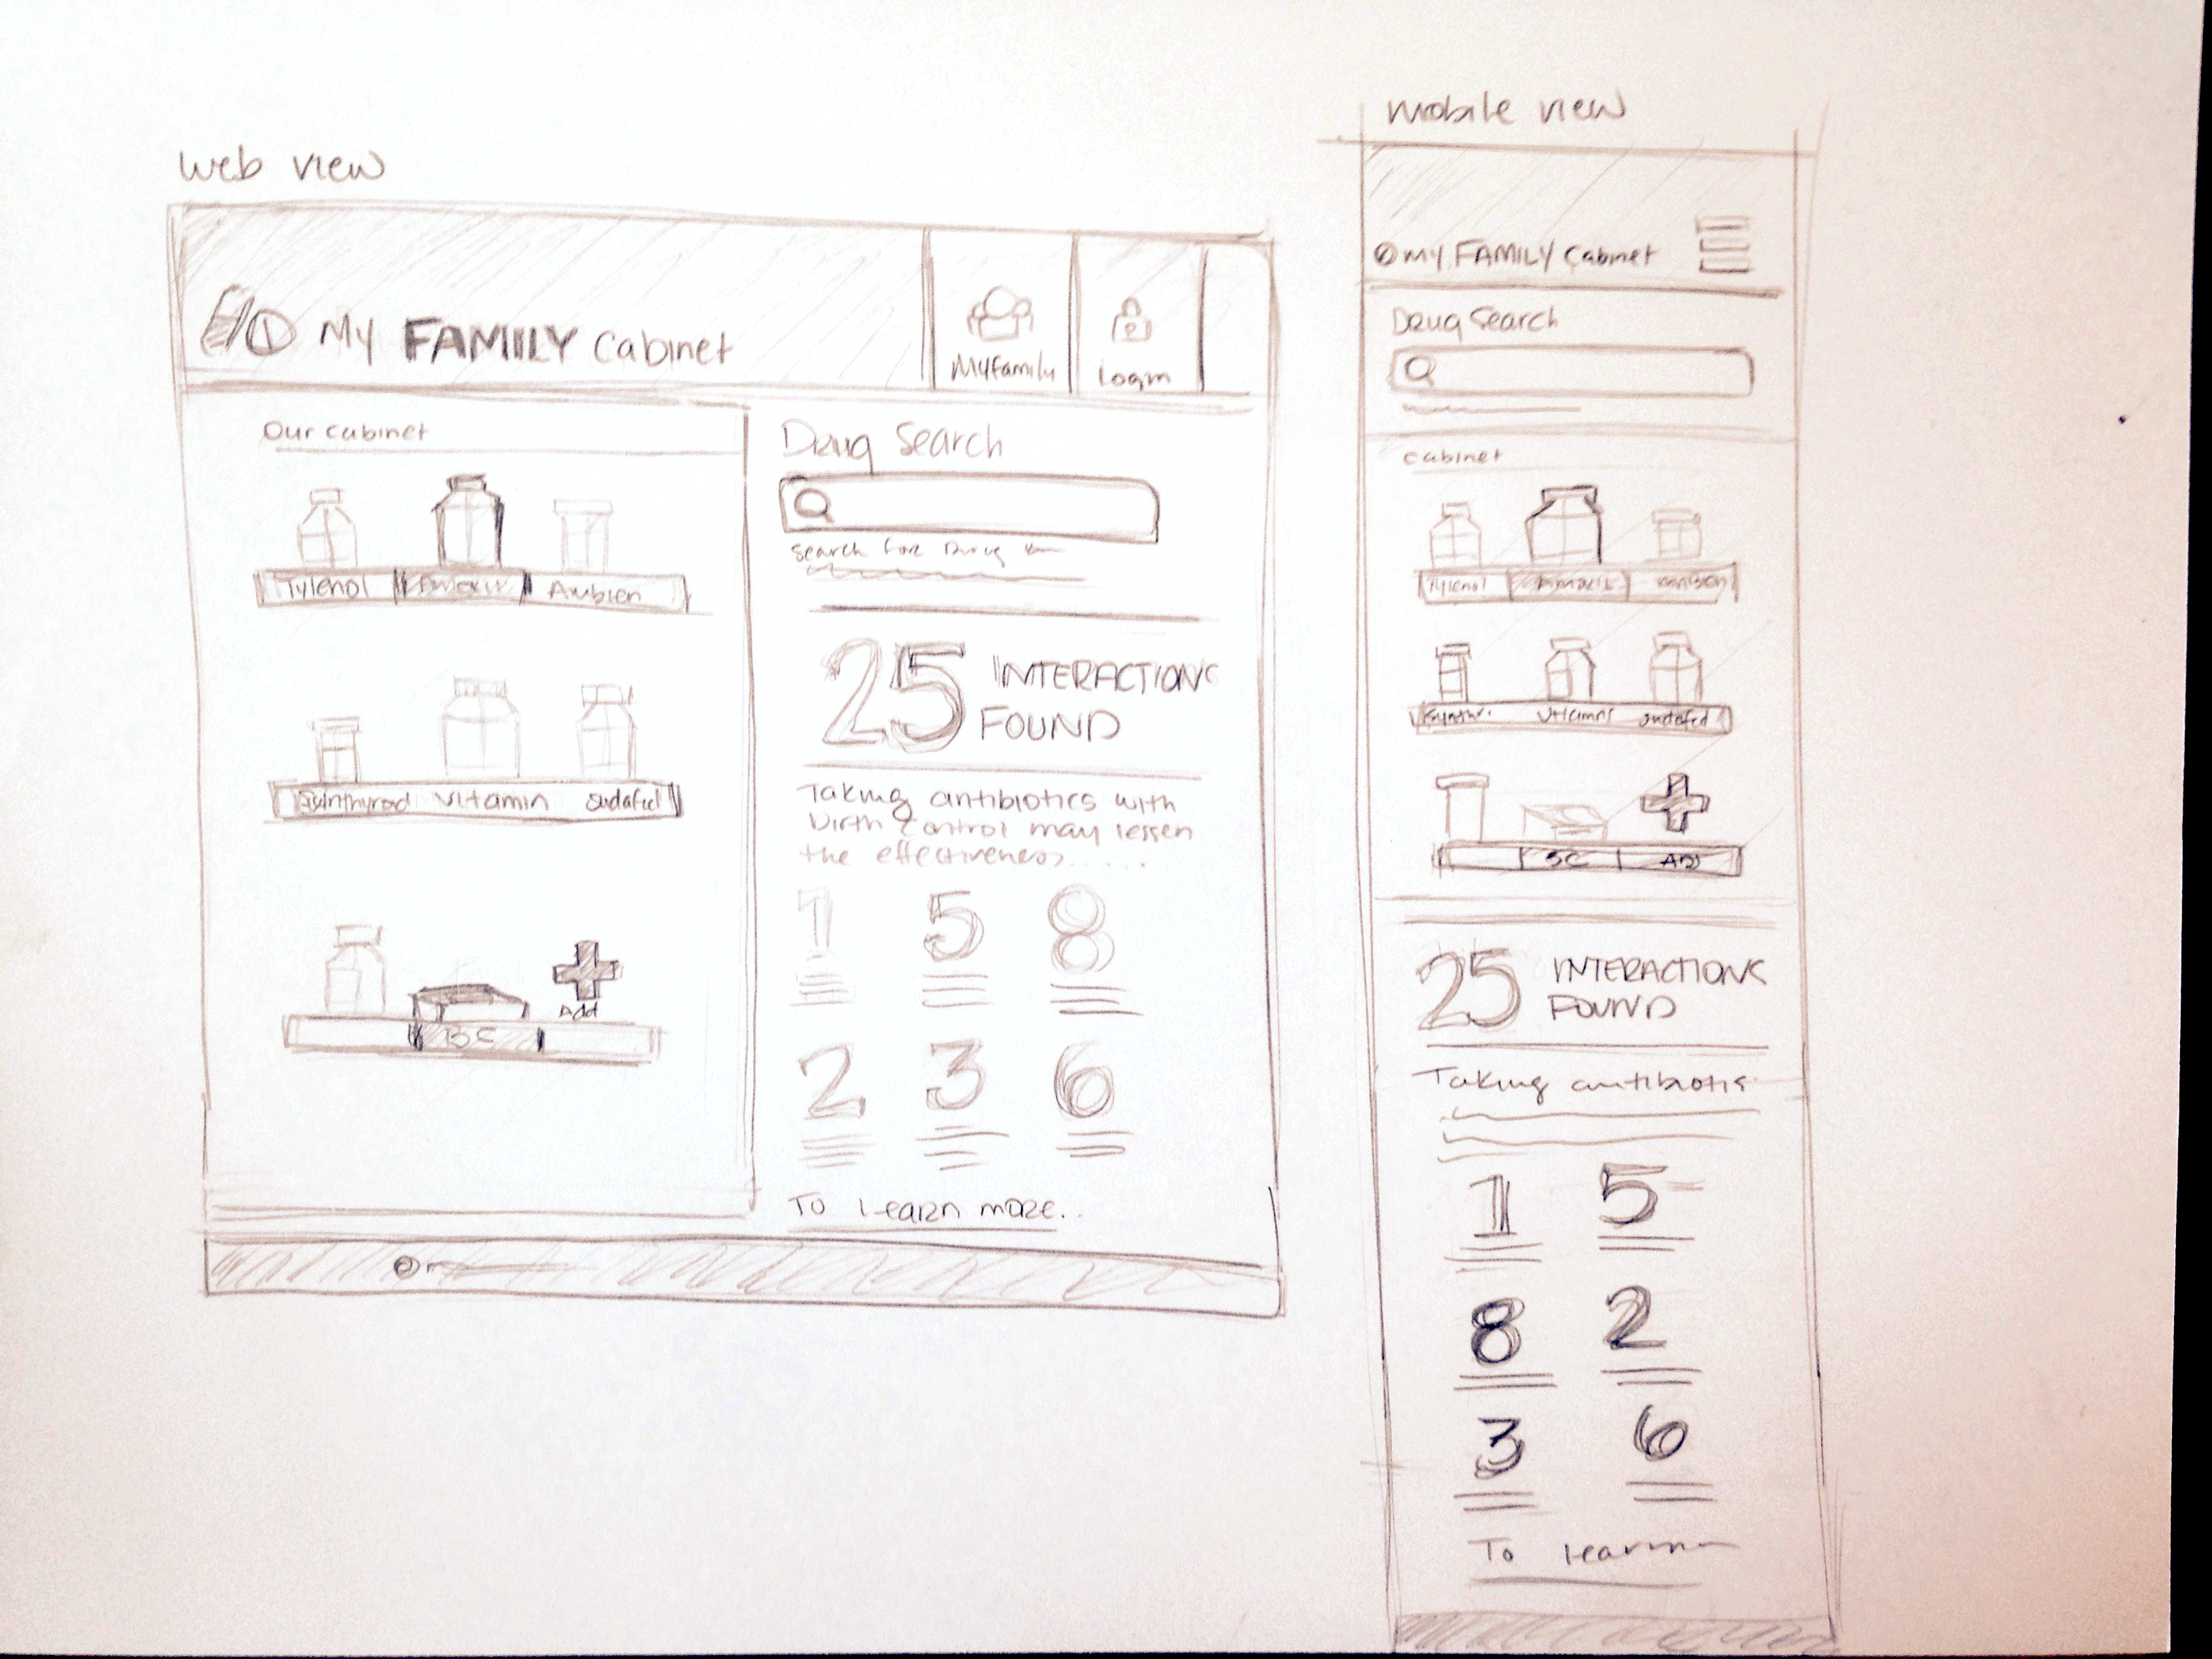 web view
My FAMILY Cabinet
MyFamily
Login
Our cabinet
Tylenol
Ambien
Synthyroid vitamin sudafed
Add
BC
Drug Search
search for Drug
25 INTERACTIONS
FOUND
Taking antibiotics with
birth control may lessen
the effectiveness......
1 5 8
2 3 6
To learn more..
mobile view
my FAMILY Cabinet
Drug Search
cabinet
Tylenol
vitamins sudafed
BC ADD
25 INTERACTIONS
FOUND
Taking antibiotis
1 5
8 2
3 6
To learn